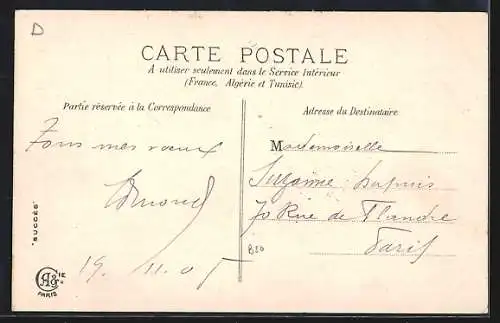 D
CARTE POSTALE
A utiliser seulement dans le Service Intérieur
(France, Algérie et Tunisie).
Partie réservée à la Correspondance
Adresse du Destinataire
Tous mes vœux
19. 11. 05
Mademoiselle
Suzanne Dupuis
70 Rue de Flandre
Paris
B20
"SUCCÈS"
PARIS